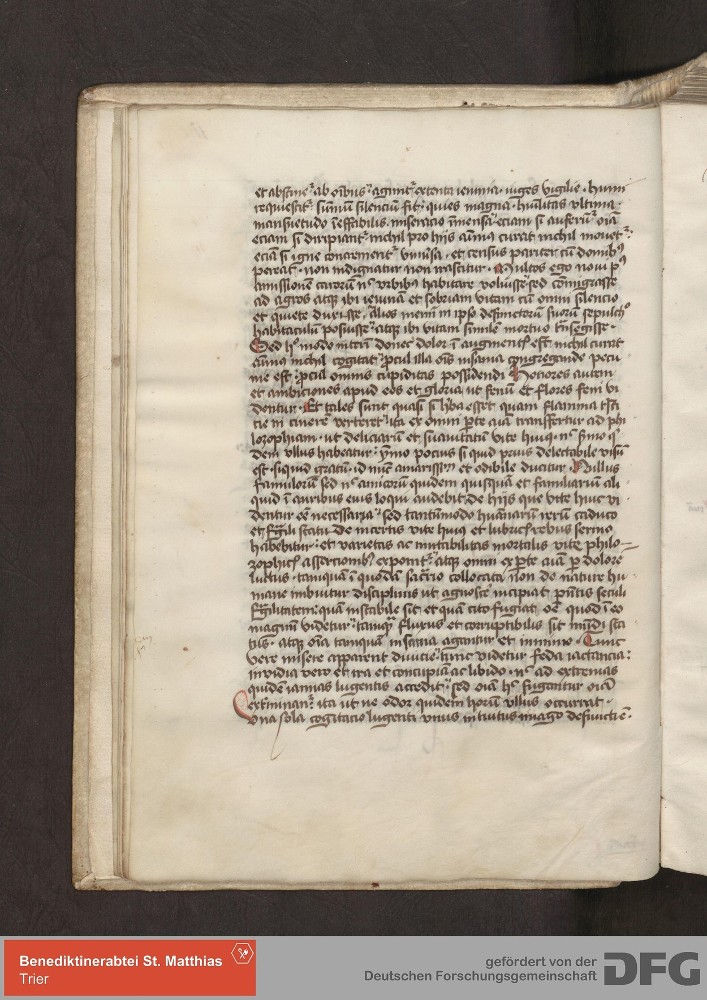 et abstinet᷑ ab oībus agunt᷑ extenta ieiunia · iuges vigilie · humi
requiescit᷑ summū silenciū fit · quies magna · huīlitas vltima ·
mansuetudo īeffabilis · miseracio īmensa · eciam si auferūt᷑ oīa
eciam si diripiant᷑ nichil pro hijs animꝰ curat nichil mouet᷑ ·
eciā si igne concrement᷑ vniuersa · et census pariter cū domibꝫ
pereat · non indignatur non irascitur · Multos ego noui pꝰ
amissionem carorum nō vrbibꝫ habitare voluisse sed comigrasse
ad agros atqꝫ ibi ieiunā et sobriam vitam cū omni silencio
et quiete duxisse · alios in ipso defunctorum suorū sepulchro
habitaculū posuisse atqꝫ ibi vitam similē mortuo trāsegisse ·
Sed hoc modo interī donec dolor ī augmento est nichil curat
animꝰ nichil cogitat procul illa oīs insania congregande pecu
nie est procul omnis cupiditas possidendi Honores autem
et ambiciones apud eos et gloria ut fenū et flores feni vi
dentur · Et tales sunt quasi si herba esset quam flamma
in cinerē verteret ita ex omni parte aīa transffertur ad phi
lozophiam · ut deliciarū et suauitatum vite huiꝰ nō sermo
dem vllus habeatur ymmo pocius si quid prius delectabile visū
est · si quid gratū · id nūc amarissimū et odibile ducitur · Nullus
famulorum sed nō amicorum quidem quisquā et familiarium ali
quid ī auribus eius loqui audebit de hijs que vite huic vi
dentur esse necessaria sed tantummodo humanarū rerū caduco
et fragili statu de incertis vite huiꝰ et lubricis rebus sermo
habebitur · et varietas ac mutabilitas mortalis vite philo
zophicis assercionibꝫ exponit᷑ atqꝫ omni ex parte aīa per dolore
luctus · tamquā ī quodā sacrario collocata non de nature hu
mane imbuitur disciplinis ut agnoscere incipiat presentis seculi
fragilitatem quam instabile sit et quā cito fugiat omne quod ī eo
magnū videtur tamqꝫ fluxus et corruptibilis sit mūdi sta
tus · atqꝫ oīa tamquā in scena agantur et mimime · Tunc
vere misere apparent diuicie tunc videtur feda iactancia :
inuidia vero et ira et concupīa ac libido · nō ad extremas
quidem ianuas lugentis accedit sed oīa hec fugantur oīa
exterminant᷑ ita ut ne odor quidem horū vllus occurrat ·
vna sola cogitacio lugenti vnus intuitus imago defuncti ē ·
Benediktinerabtei St. Matthias
Trier
gefördert von der
Deutschen Forschungsgemeinschaft DFG